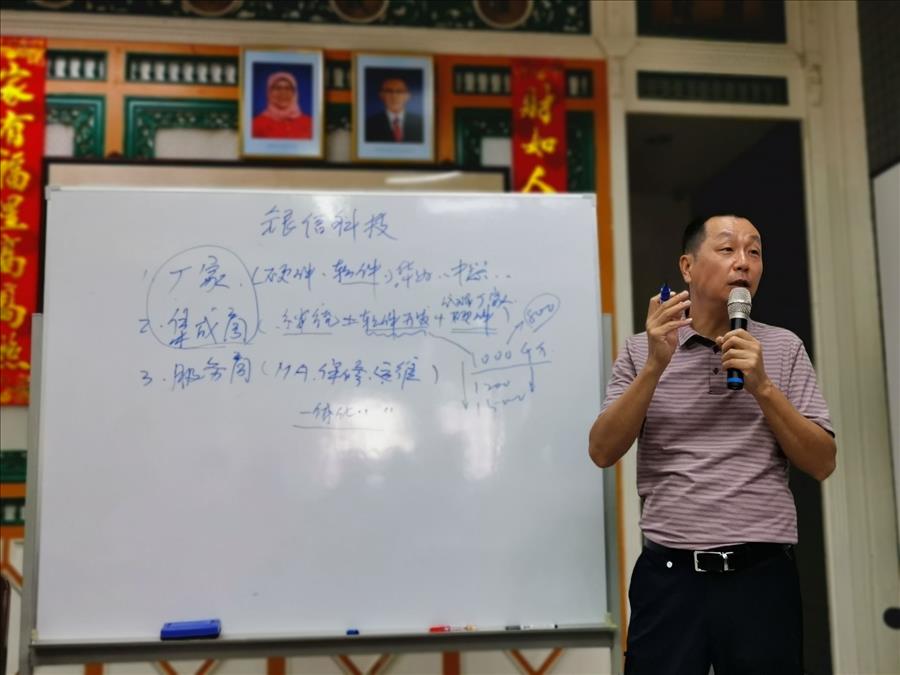 家有福星高高照
财如
银信科技
1. 厂家 (硬件、软件) 华为、中兴..
2. 集成商 ( 软件开发 + 硬件 )
800
1000
3. 服务商 (MA.保修.运维)
1200
1500
一体化